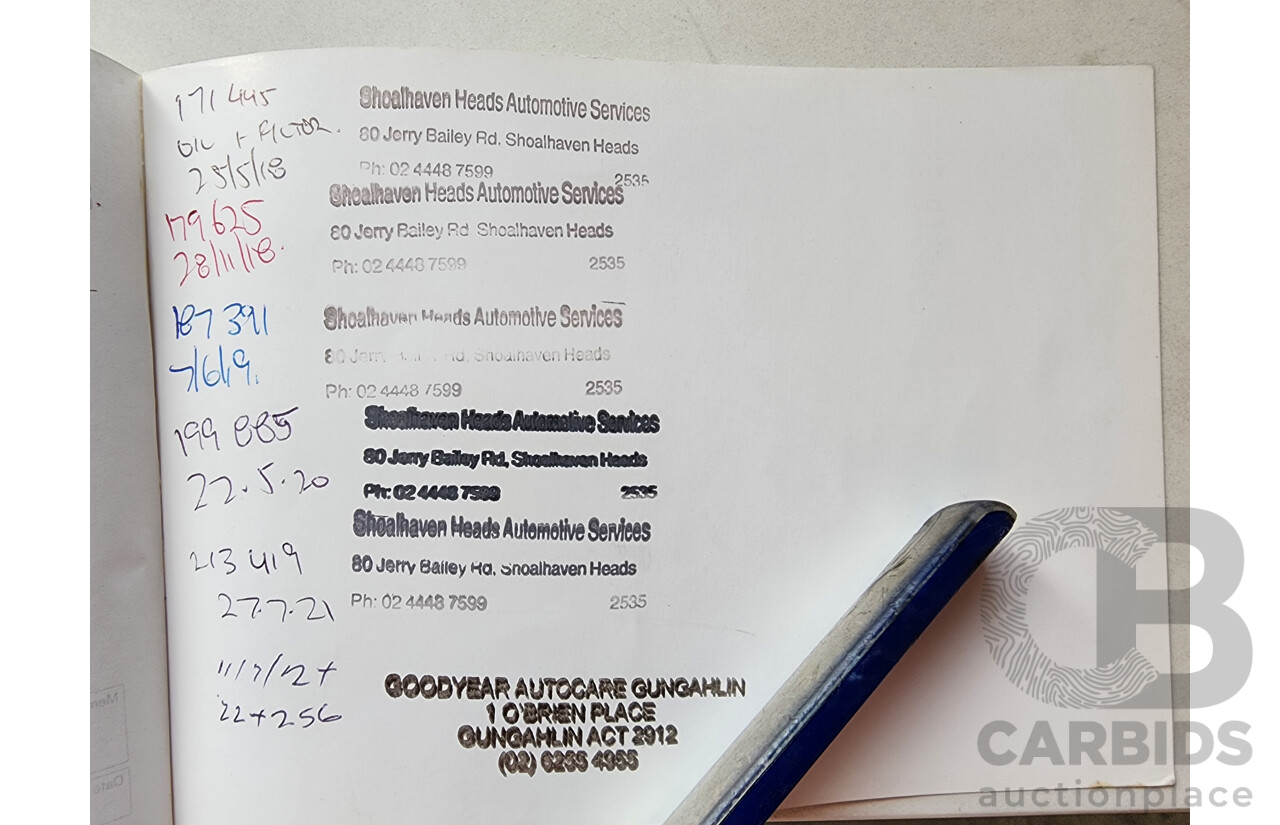 171 445
OIL + FILTER.
25/5/18
Shoalhaven Heads Automotive Services
80 Jerry Bailey Rd. Shoalhaven Heads
Ph: 02 4448 7599 2535
179625
28/11/18.
Shoalhaven Heads Automotive Services
80 Jerry Bailey Rd Shoalhaven Heads
Ph: 02 4448 7599 2535
187 391
7/6/19.
Shoalhaven Heads Automotive Services
80 Jerry Rd, Shoalhaven Heads
Ph: 02 4448 7599 2535
199 885
22.5.20
Shoalhaven Heads Automotive Services
80 Jerry Bailey Rd, Shoalhaven Heads
Ph: 02 4448 7599 2535
213 419
27.7.21
Shoalhaven Heads Automotive Services
80 Jerry Bailey Rd, Shoalhaven Heads
Ph: 02 4448 7599 2535
GOODYEAR AUTOCARE GUNGAHLIN
1 O'BRIEN PLACE
GUNGAHLIN ACT 2912
(02) 6255 4955
CB
CARBIDS
auctionplace